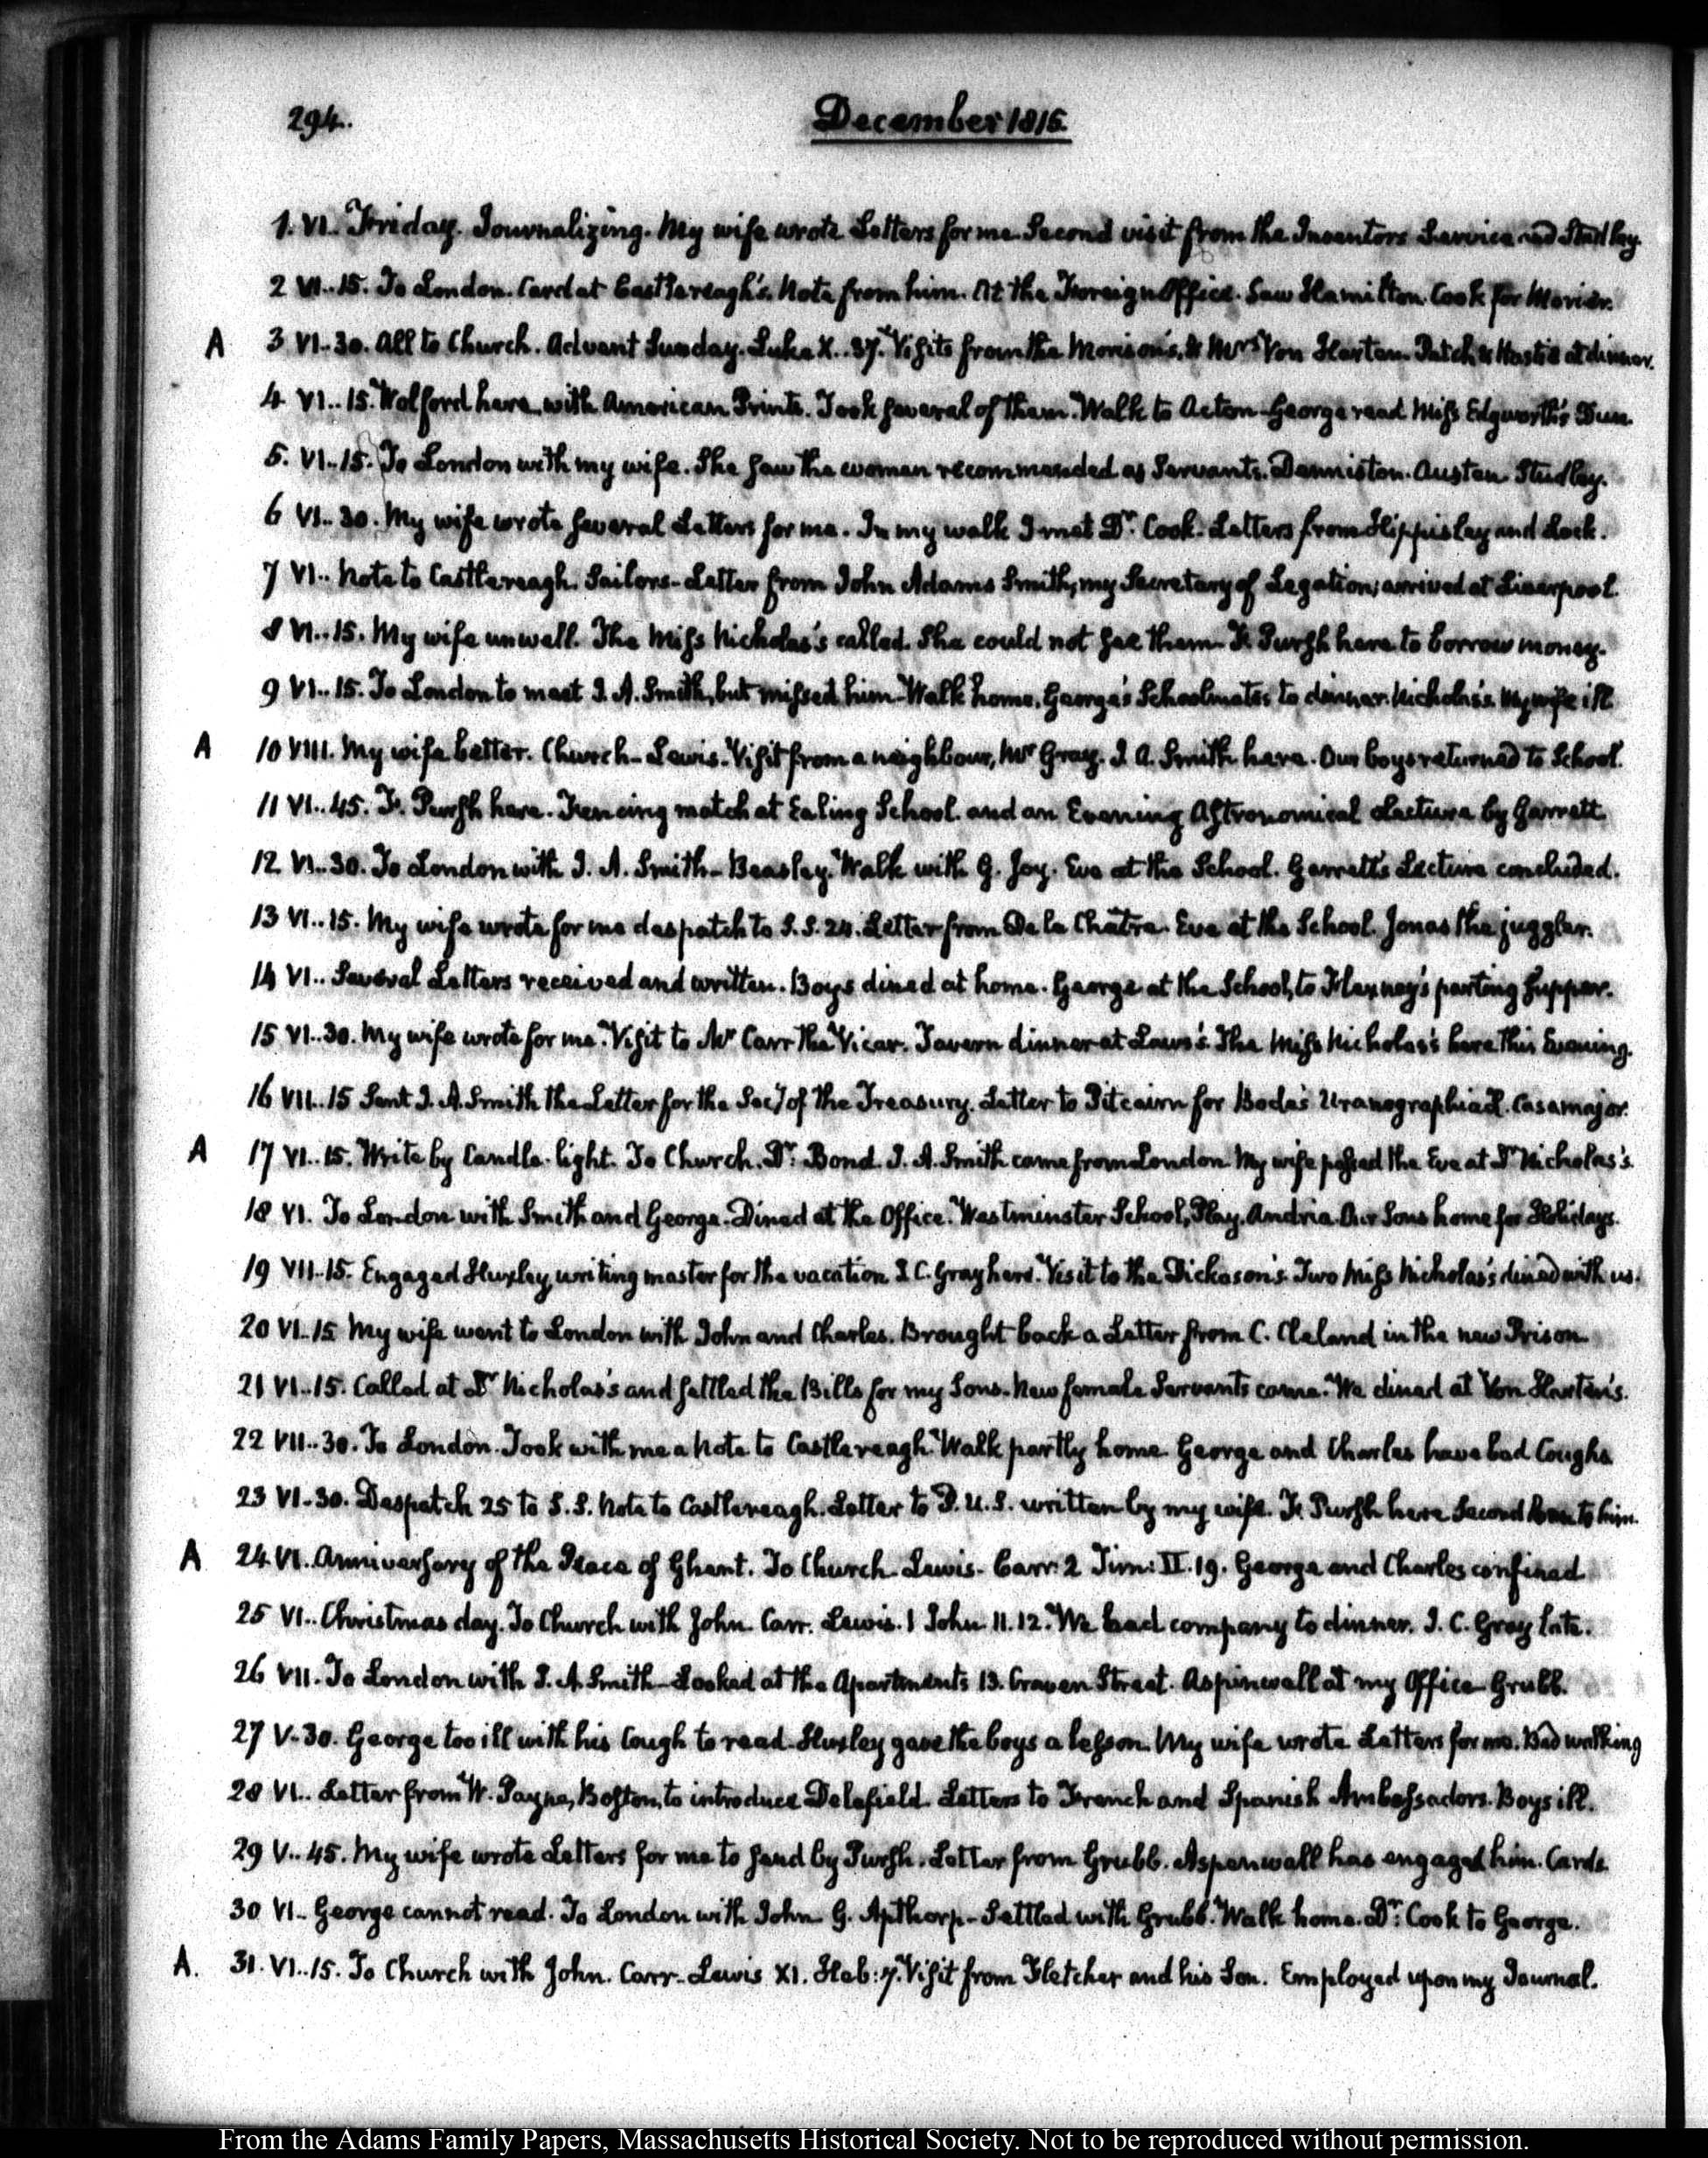 294.
December 1815.
1. VI. Friday. Journalizing. My wife wrote Letters for me. Second visit from the Inventors Service and Studley.
2 VI..15. To London. Card at Castlereagh's. Note from him. At the Foreign Office. Saw Hamilton. Cook for Morier.
A 3 VI..30. All to Church. Advent Sunday. Luke X..37. Visits from the & Mrs Von Harten. Patch & Hastie at dinner.
4 VI..15. Wolford here with American Prints. Took several of them. Walk to Acton. George read Miss Edgworth's Dun.
5. VI..15. To London with my wife. She saw the woman recommended as Servants. Denniston. Austen. Studley.
6 VI..30. My wife wrote several Letters for me. In my walk I met Dr. Cook. Letters from Hippisley and Lock.
7 VI.. Note to Castlereagh. Sailors- Letter from John Adams Smith, my Secretary of Legation; arrived at Liverpool.
8 VI..15. My wife unwell. The Miss Nicholas's called. She could not see them. F. Pursh here to borrow money.
9 VI..15. To London to meet J. A. Smith, but missed him- Walk home. George's Schoolmates to dinner. Nicholas's. My wife ill.
A 10 VIII. My wife better. Church- Lewis. Visit from a neighbour, Mr Gray. J. A. Smith here. Our boys returned to School.
11 VI..45. F. Pursh here. Fencing match at Ealing School. and an Evening Astronomical Lecture by Garrett.
12 VI..30. To London with J. A. Smith- Beasley. Walk with G. Joy. Eve at the School. Garrett's Lecture concluded.
13 VI..15. My wife wrote for me despatch to S.S. 24. Letter from De la Chatre. Eve at the School. Jonas the juggler.
14 VI.. Several Letters received and written. Boys dined at home. George at the School, to parting supper.
15 VI..30. My wife wrote for me. Visit to Mr Carr the Vicar. Tavern dinner at Laws's. The Miss Nicholas's here this Evening.
16 VII..15 Sent J. A. Smith the Letter for the Secy of the Treasury. Letter to Pitcairn for Bode's Uranographia. Casamajor.
A 17 VI..15. Write by Candle-light. To Church. Dr. Bond. J. A. Smith came from London. My wife passed the Eve at Dr Nicholas's.
18 VI. To London with Smith and George. Dined at the Office. Westminster School, Play. Andria. Our Sons home for Holidays.
19 VII..15. Engaged Huxley, writing master for the vacation. J. C. Gray here. Visit to the Dickason's. Two Miss Nicholas's dined with us.
20 VI..15 My wife went to London with John and Charles. Brought back a Letter from C. Cleland in the new Prison.
21 VI..15. Called at Dr Nicholas's and settled the Bills for my Sons. New female Servants came. We dined at Von Harten's.
22 VII..30. To London. Took with me a Note to Castlereagh. Walk partly home. George and Charles have bad Coughs
23 VI-30. Despatch 25 to S.S. Note to Castlereagh. Letter to P. U. S. written by my wife. F. Pursh here Second Loan to him.
A 24. VI. Anniversary of the Peace of Ghent. To Church. Lewis- Carr: 2 Tim: II. 19. George and Charles confined
25 VI.. Christmas day. To Church with John. Carr. Lewis. 1 John II. 12. We had company to dinner. J. C. Gray late.
26 VII. To London with J. A. Smith- Looked at the Apartments 13. Craven Street. Aspinwall at my Office- Grubb.
27 V-30. George too ill with his Cough to read. Huxley gave the boys a lesson. My wife wrote Letters for me. Bad walking
28 VI.. Letter from W. Payne, Boston, to introduce Delafield. Letters to French and Spanish Ambassadors. Boys ill.
29 V..45. My wife wrote Letters for me to send by Pursh. Letter from Grubb. Aspenwall has engaged him. Cards.
30 VI.. George cannot read. To London with John. G. Apthorp- Settled with Grubb. Walk home. Dr. Cook to George.
A. 31. VI..15. To Church with John. Carr- Lewis XI. Heb: 7. Visit from Fletcher and his Son. Employed upon my Journal.
From the Adams Family Papers, Massachusetts Historical Society. Not to be reproduced without permission.